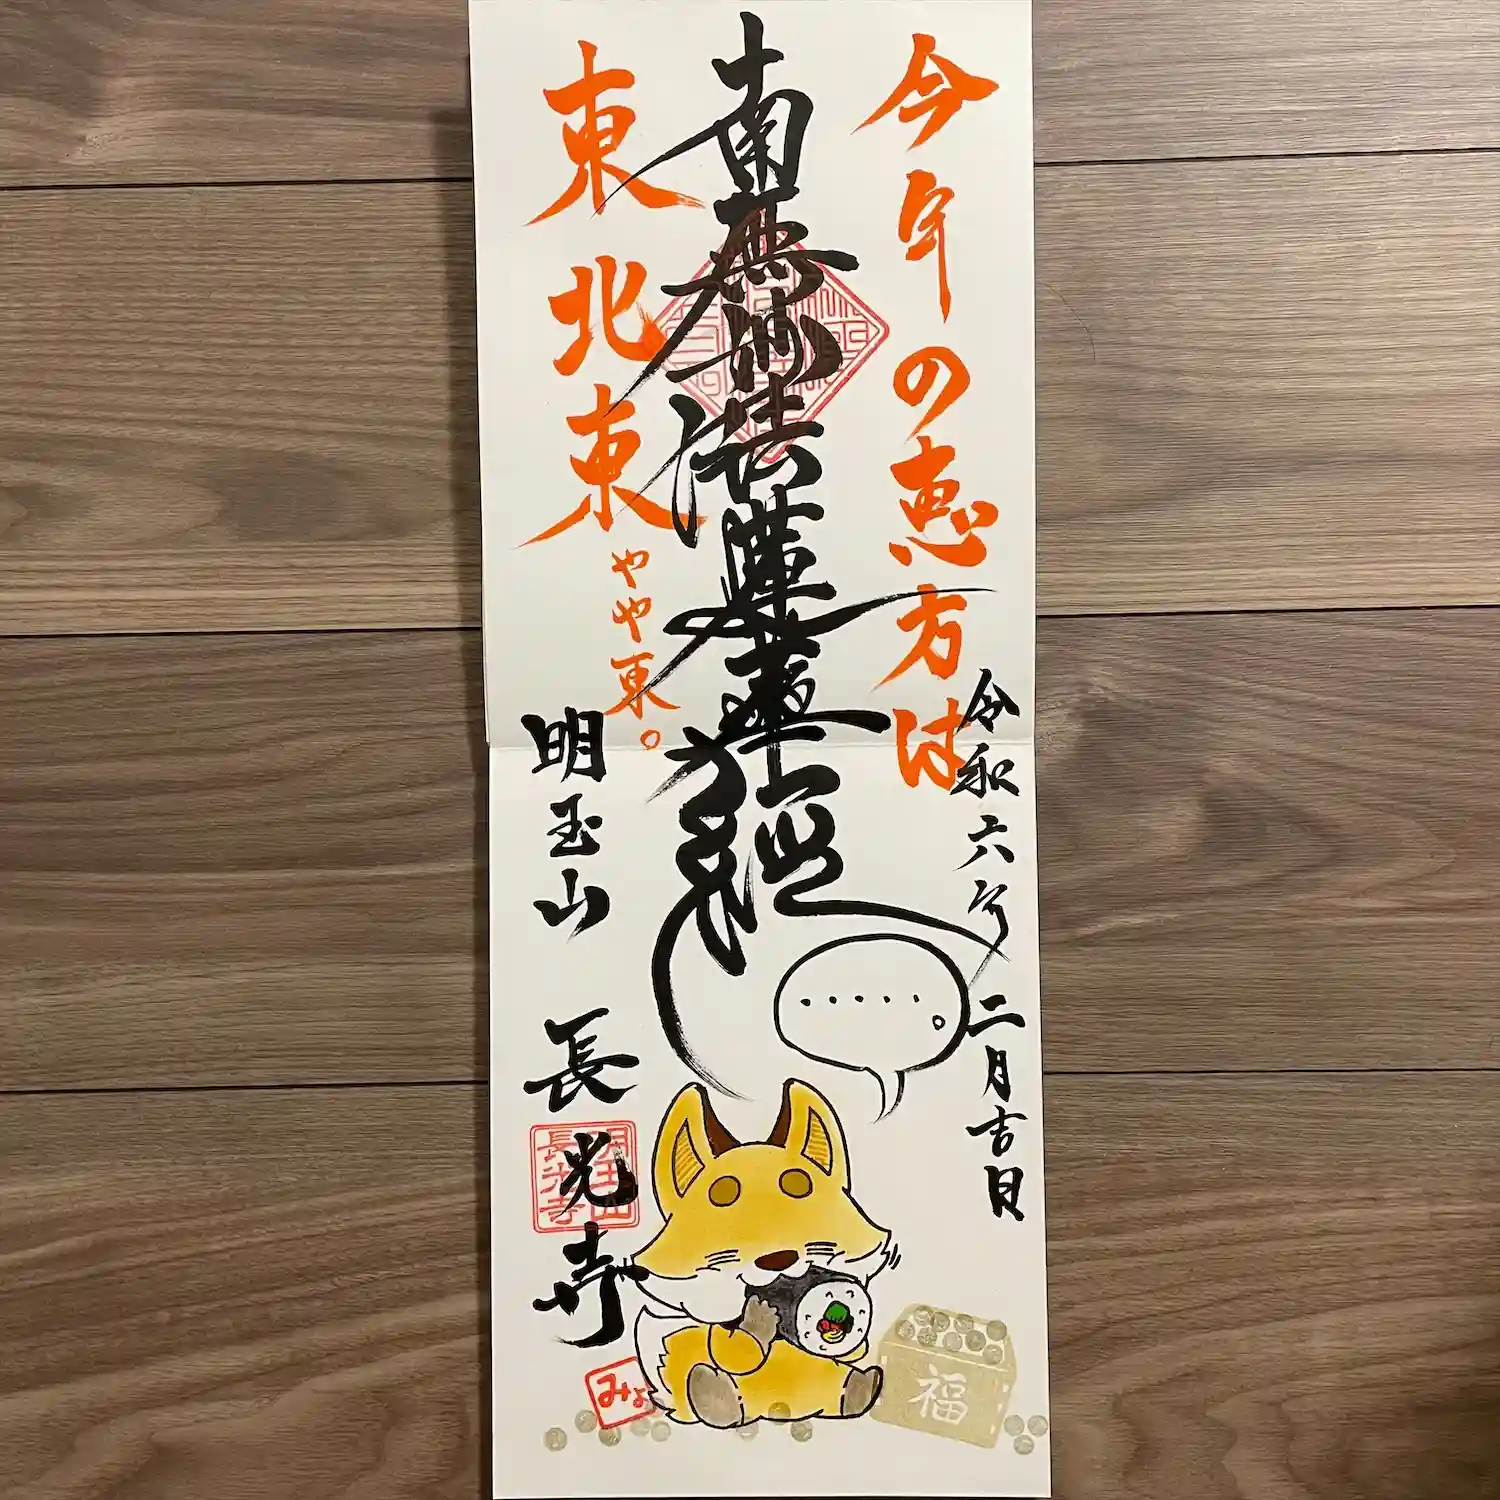 今年の恵方は
令和六年二月吉日
南無妙法蓮華経
・・・・・。
東北東
やや東。
明玉山
長光寺
明玉山
長光寺
みょ
福